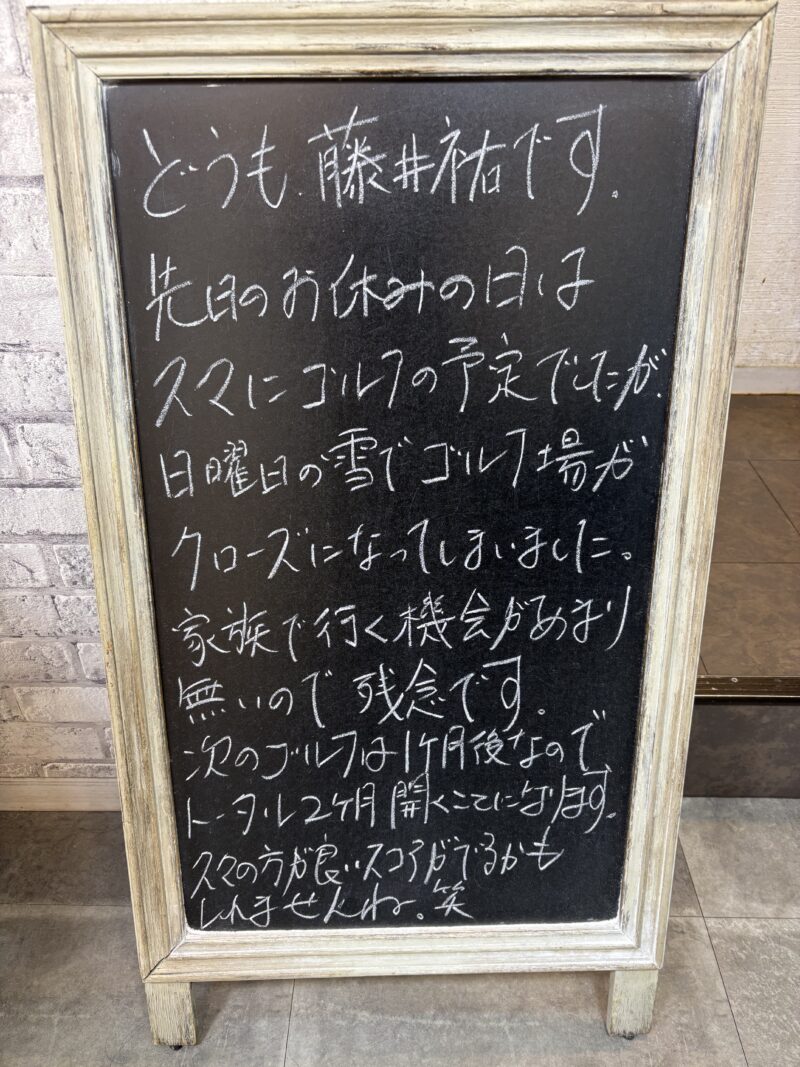 どうも、藤井祐です。
先日のお休みの日は
スマにゴルフの予定でしたが、
日曜日の雪でゴルフ場が
クローズになってしまいました。
家族で行く機会があまり
無いので残念です。
次のゴルフは1ヶ月後なので、
トータル2ヶ月開くことになります。
スマの方が良いスコアがでるかも
しれませんね。笑